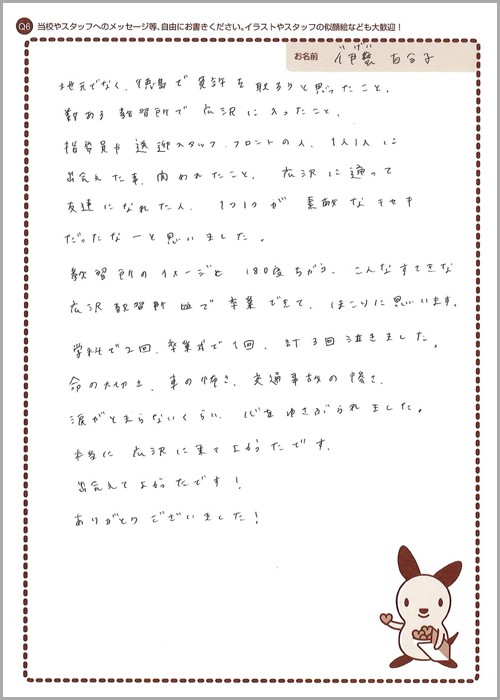 Q6 当校やスタッフへのメッセージ等、自由にお書きください。イラストやスタッフの似顔絵なども大歓迎！
お名前 百合子
地元でなく、徳島で免許を取ろうと思ったこと、
数ある教習所で広沢に入ったこと、
指導員や送迎スタッフ、フロントの人、1人1人に
出会えた事、関われたこと、広沢に通って
友達になれた人、1つ1つが素敵なキセキ
だったなーと思いました。
教習所のイメージと180度ちがう、こんなすてきな
広沢教習所 で卒業できて、ほこりに思います。
学科で2回、卒業式で1回、計3回泣きました。
命の大切さ、車の怖さ、交通事故の 、
涙がとまらないくらい、心をゆさぶられました。
本当に広沢に来てよかったです。
出会えてよかったです！
ありがとうございました！